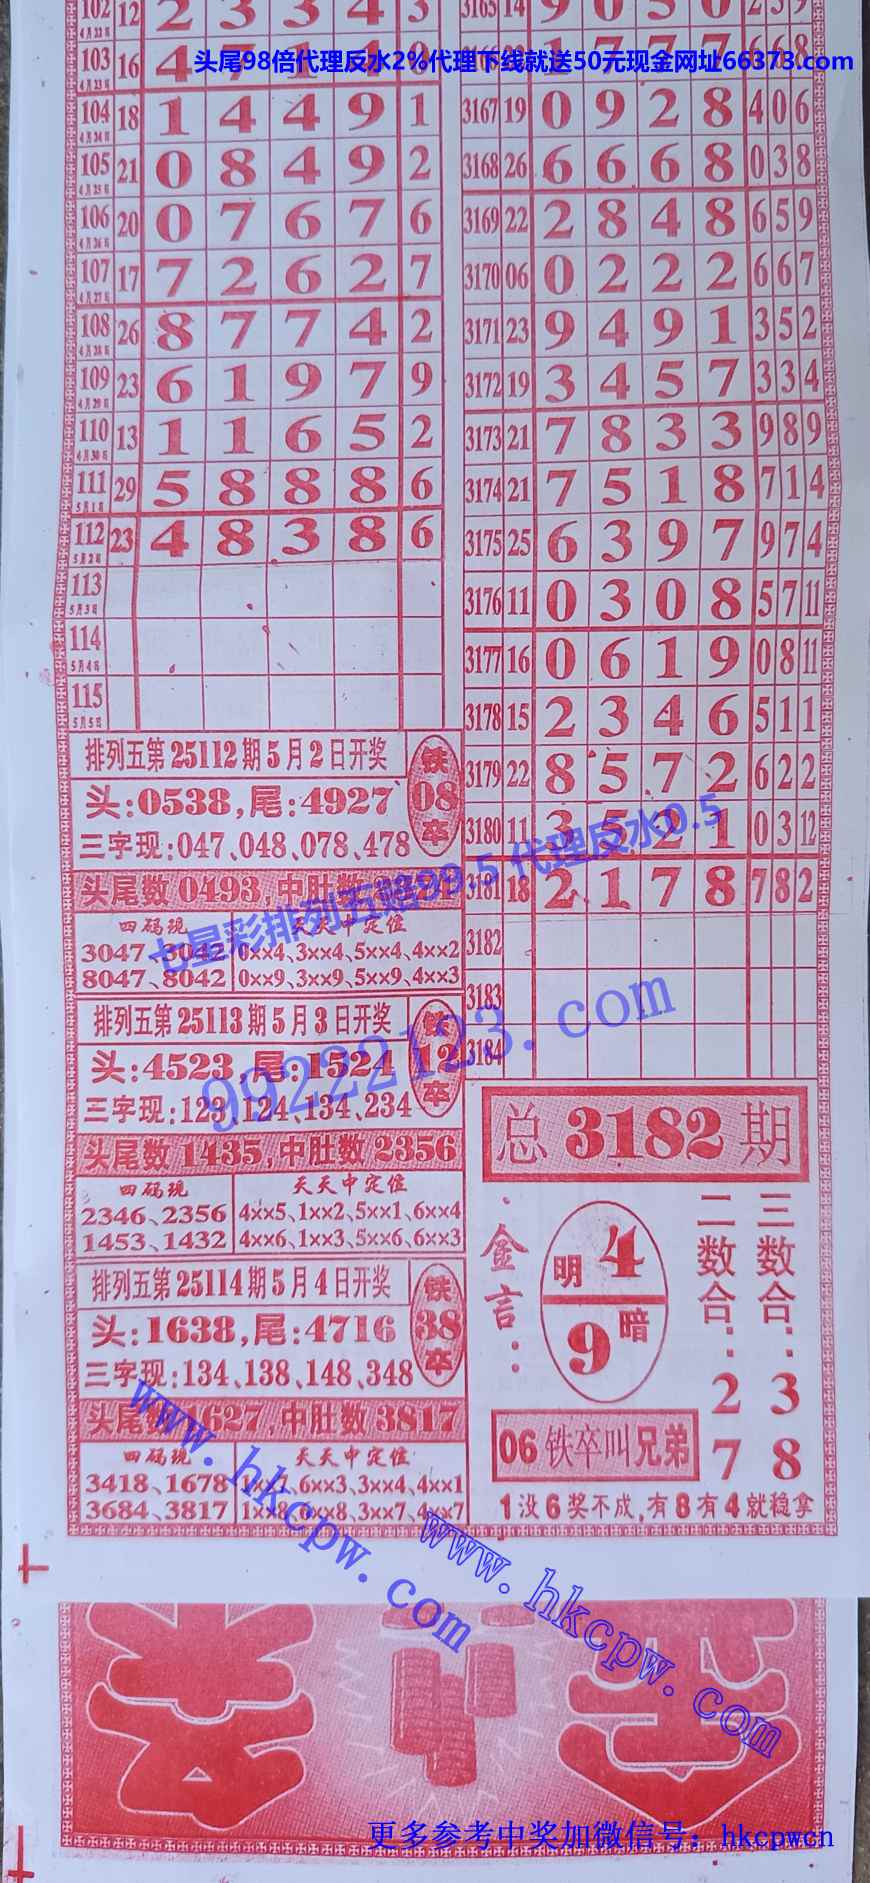 102 12 2 3 3 4 3
4月22日
头尾98倍代理反水2%代理下线就送50元现金网址66373.com
103 16 4 7 1 4 0
4月23日
104 18 1 4 4 9 1
4月24日
105 21 0 8 4 9 2
4月25日
106 20 0 7 6 7 6
4月26日
107 17 7 2 6 2 7
4月27日
108 26 8 7 7 4 2
4月28日
109 23 6 1 9 7 9
4月29日
110 13 1 1 6 5 2
4月30日
111 29 5 8 8 8 6
5月1日
112 23 4 8 3 8 6
5月2日
113
5月3日
114
5月4日
115
5月5日
排列五第25112期5月2日开奖
头:0538,尾:4927
铁08卒
三字现:047、048、078、478
头尾数0493,中肚数
四码现
3047、3042
8047、8042
天天中定位
0××4、3××4、5××4、4××2
0××9、3××9、5××9、4××3
排列五第25113期5月3日开奖
头:4523,尾:1524
铁12卒
三字现:123、124、134、234
头尾数1435,中肚数2356
四码现
2346、2356
1453、1432
天天中定位
4××5、1××2、5××1、6××4
4××6、1××3、5××6、6××3
排列五第25114期5月4日开奖
头:1638,尾:4716
铁38卒
三字现:134、138、148、348
头尾数1627,中肚数3817
四码现
3418、1678
3684、3817
天天中定位
1××7、6××3、3××4、4××1
1××8、6××8、3××7、4××7
3165 14 9 0 5 0 2 5 9
1 7 7 7 6 6 8
3167 19 0 9 2 8 4 0 6
3168 26 6 6 6 8 0 3 8
3169 22 2 8 4 8 6 5 9
3170 06 0 2 2 2 6 6 7
3171 23 9 4 9 1 3 5 2
3172 19 3 4 5 7 3 3 4
3173 21 7 8 3 3 9 8 9
3174 21 7 5 1 8 7 1 4
3175 25 6 3 9 7 9 7 4
3176 11 0 3 0 8 5 7 11
3177 16 0 6 1 9 0 8 11
3178 15 2 3 4 6 5 1 1
3179 22 8 5 7 2 6 2 2
3180 11 3 5 2 1 0 3 12
3181 18 2 1 7 8 7 8 2
3182
3183
3184
七星彩排列五赔99.5 代理反水0.5
99222123.com
总3182期
金言:
明4
9暗
二数合:27
三数合:38
06铁卒叫兄弟
1没6奖不成,有8有4就稳拿
www.hkcpw.com
www.hkcpw.com
更多参考中奖加微信号：hkcpwcn